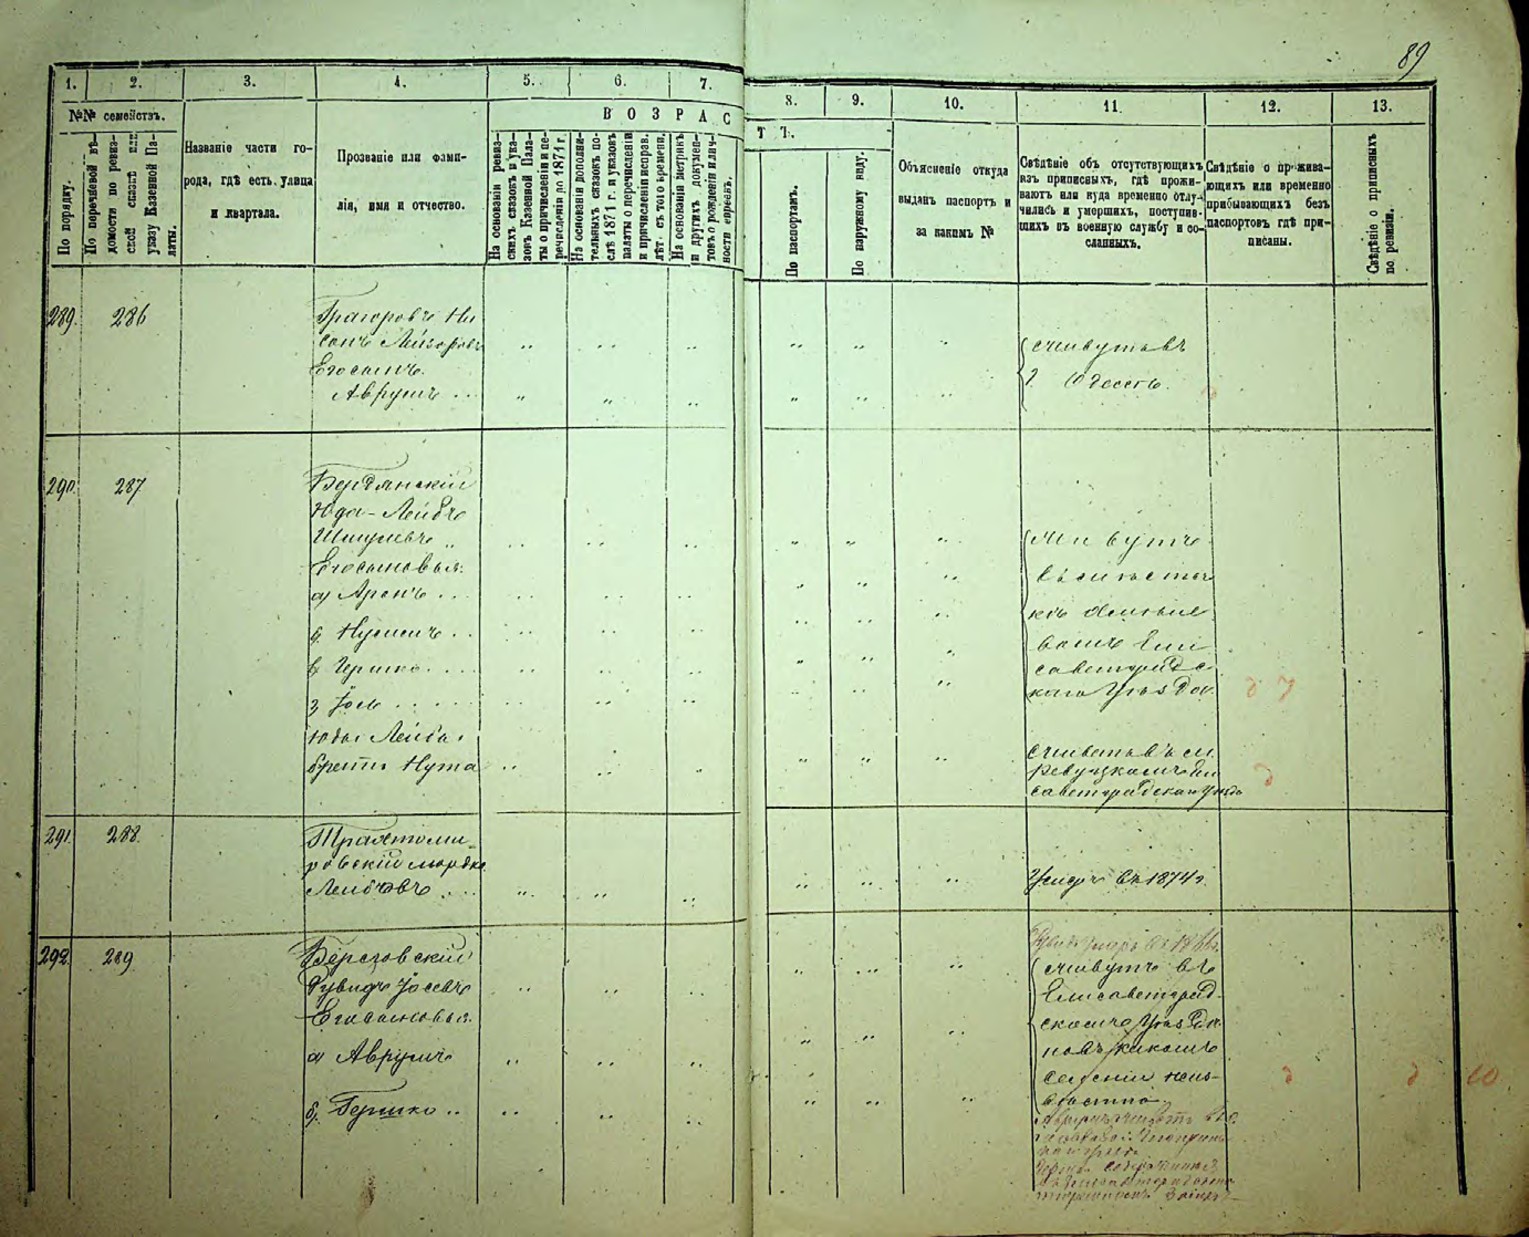 89
1. 2. 3. 4. 5. 6. 7. 8. 9. 10. 11. 12. 13.
№№ семействъ.
По порядку.
По поречневой вѣ-
домости по ревиз-
ской сказкѣ или
указу Казенной Па-
латы.
Названіе части го-
рода, гдѣ есть улица
и кварталa.
Прозваніе или фами-
лія, имя и отчество.
ВОЗРАСТЪ.
На основаніи ревиз-
скихъ сказокъ и ука-
зовъ Казенной Пала-
ты о причисленіи и пе-
речисленіи до 1871 г.
На основаніи дополни-
тельныхъ сказокъ по-
слѣ 1871 г. и указовъ
палаты о перечисленіи
и причисленіи исправ.
лѣт. съ того времени.
На основаніи метрикъ
и другихъ докумен-
товъ о рожденіи и лич-
ности евреевъ.
По паспортамъ.
По наружному виду.
Объясненіе откуда
выданъ паспортъ и
за какимъ №
Свѣдѣніе объ отсутствующихъ
изъ приписныхъ, гдѣ прожи-
ваютъ или куда временно отлу-
чились и умершихъ, поступив-
шихъ въ военную службу и со-
сланныхъ.
Свѣдѣніе о прожива-
ющихъ или временно
прибывающихъ безъ
паспортовъ гдѣ при-
писаны.
Свѣдѣніе о приписныхъ
по ревизіи.
289. 286
Григоровъ Ни
сонъ Лейзоровъ
Его сынъ
Аврумъ
живутъ въ
г. Одессѣ.
290. 287
Бердянскій
Юда-Лейбъ
Шмулевъ
Его сыновья:
а) Аронъ
б. Нусимъ
в Гершко
г Іось
Юды Лейба
братъ Нута
живутъ
въ мѣстеч
кѣ
Ели
саветградс
каго Уѣзда.
живетъ въ м.
Ревуцкомъ Ели
саветградскаго Уѣзда
291. 288.
Трахтоми
ровскій Мордко
Лейбовъ
Умеръ въ 1874 г.
292. 289
Береговскій
Рувидъ Іосевъ
Его сыновья.
а) Аврумъ
б. Гершко
живутъ въ
Елисаветград-
скомъ Уѣздѣ.
но въ какомъ
селеніи неиз-
вѣстно.